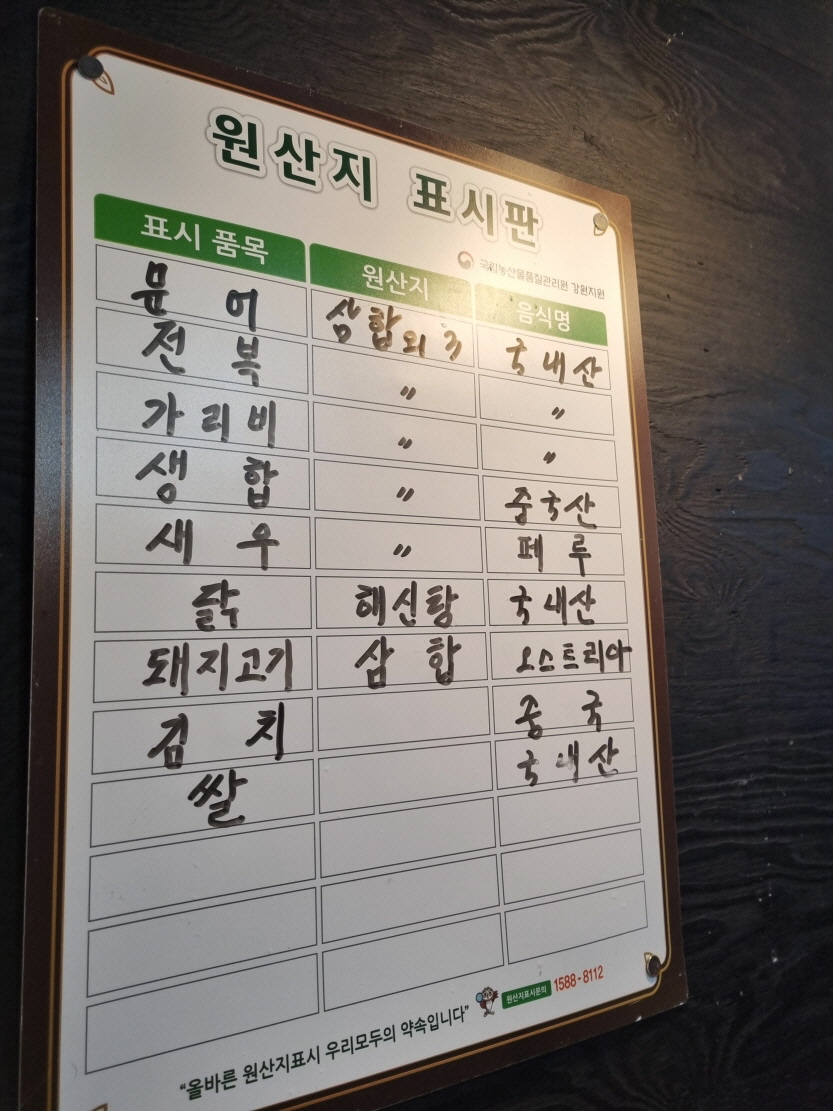 원산지 표시판
국립농산물품질관리원 강원지원
표시 품목 원산지 음식명
문어 삼합외 3 국내산
전복 〃 〃
가리비 〃 〃
생합 〃 중국산
새우 〃 페루
닭 해신탕 국내산
돼지고기 삼합 오스트리아
김치 중국
쌀 국내산
원산지표시문의 1588-8112
"올바른 원산지표시 우리모두의 약속입니다"